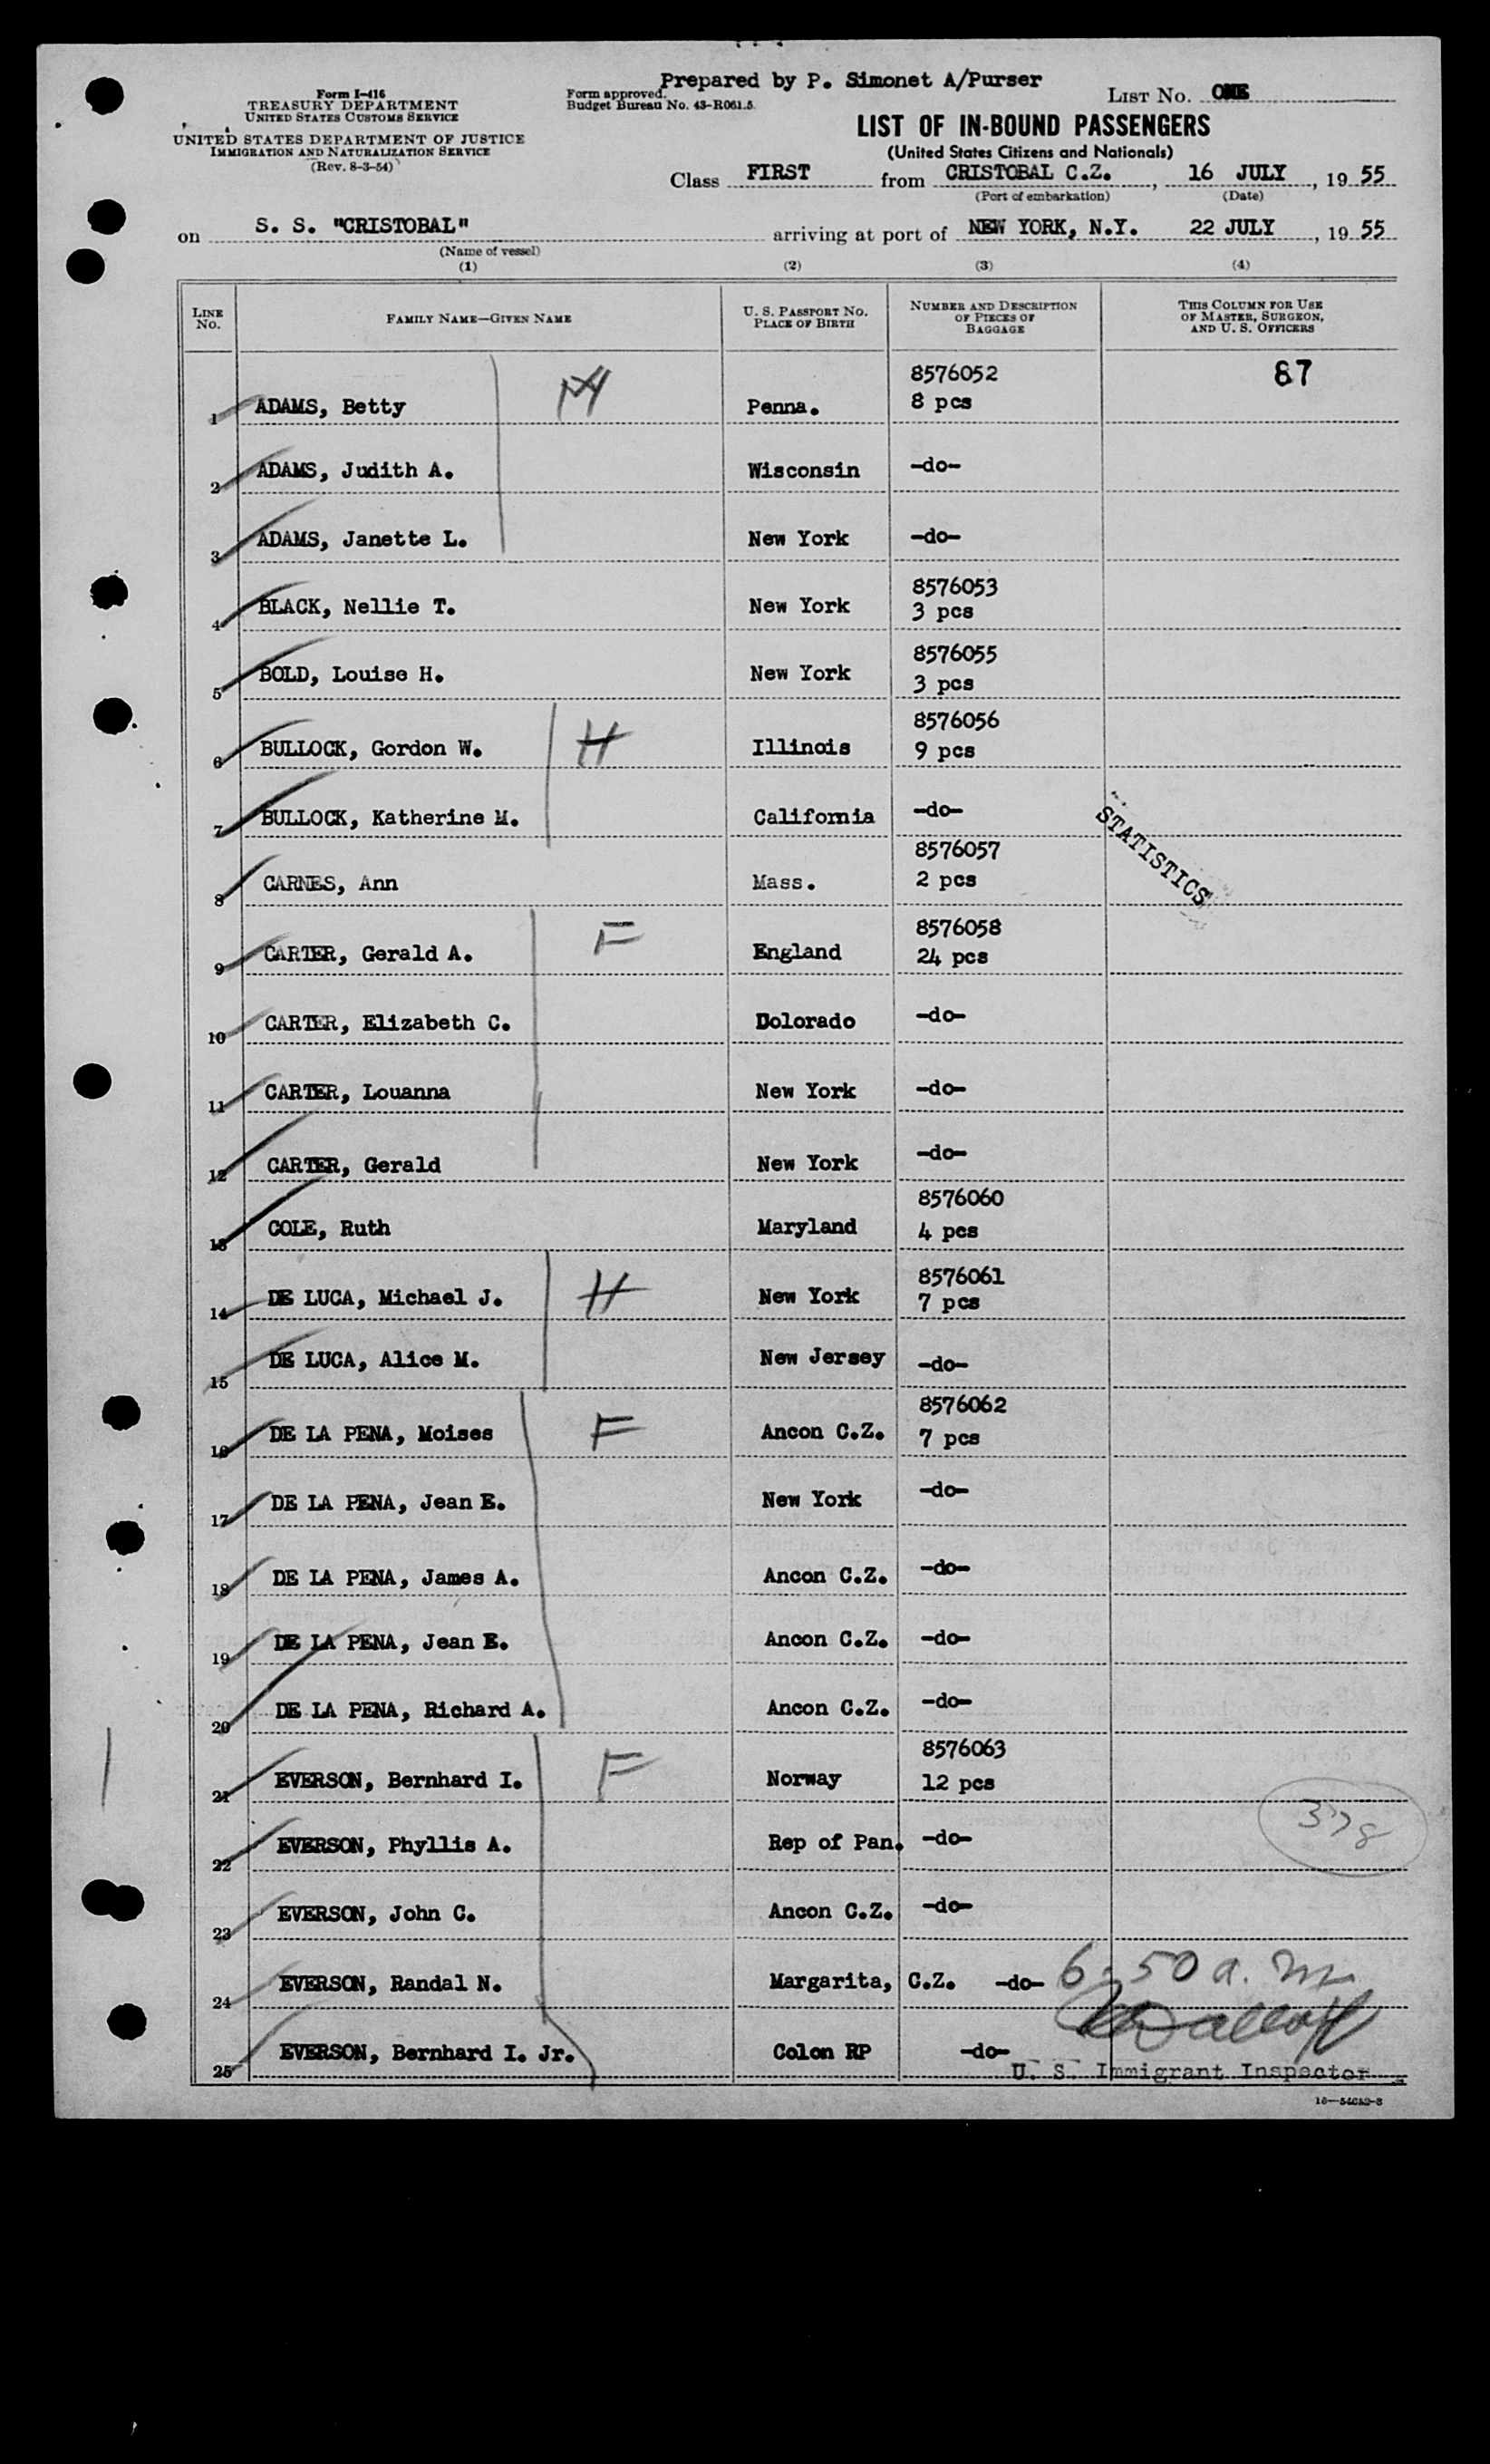 Prepared by P. Simonet A/Purser
Form I-416
TREASURY DEPARTMENT
UNITED STATES CUSTOMS SERVICE
UNITED STATES DEPARTMENT OF JUSTICE
IMMIGRATION AND NATURALIZATION SERVICE
(Rev. 8-3-54)
Form approved.
Budget Bureau No. 43-R061.5.
LIST NO. ONE
LIST OF IN-BOUND PASSENGERS
(United States Citizens and Nationals)
Class FIRST from CRISTOBAL C.Z., 16 JULY, 19 55
(Port of embarkation) (Date)
on S. S. "CRISTOBAL" arriving at port of NEW YORK, N.Y. 22 JULY, 19 55
(Name of vessel)
(1) (2) (3) (4)
LINE NO. FAMILY NAME—GIVEN NAME U. S. PASSPORT NO. PLACE OF BIRTH NUMBER AND DESCRIPTION OF PIECES OF BAGGAGE THIS COLUMN FOR USE OF MASTER, SURGEON, AND U. S. OFFICERS
8576052 87
1 ADAMS, Betty Penna. 8 pcs
2 ADAMS, Judith A. Wisconsin -do-
3 ADAMS, Janette L. New York -do-
8576053
4 BLACK, Nellie T. New York 3 pcs
8576055
5 BOLD, Louise H. New York 3 pcs
8576056
6 BULLOCK, Gordon W. H Illinois 9 pcs
7 BULLOCK, Katherine M. California -do-
STATISTICS
8576057
8 CARNES, Ann Mass. 2 pcs
8576058
9 CARTER, Gerald A. F England 24 pcs
10 CARTER, Elizabeth C. Dolorado -do-
11 CARTER, Louanna New York -do-
12 CARTER, Gerald New York -do-
8576060
13 COLE, Ruth Maryland 4 pcs
8576061
14 DE LUCA, Michael J. H New York 7 pcs
15 DE LUCA, Alice M. New Jersey -do-
8576062
16 DE LA PENA, Moises F Ancon C.Z. 7 pcs
17 DE LA PENA, Jean E. New York -do-
18 DE LA PENA, James A. Ancon C.Z. -do-
19 DE LA PENA, Jean E. Ancon C.Z. -do-
20 DE LA PENA, Richard A. Ancon C.Z. -do-
8576063
21 EVERSON, Bernhard I. F Norway 12 pcs
378
22 EVERSON, Phyllis A. Rep of Pan. -do-
23 EVERSON, John C. Ancon C.Z. -do-
24 EVERSON, Randal N. Margarita, C.Z. -do- 6:50 a.m.
25 EVERSON, Bernhard I. Jr. Colon RP -do-
U. S. Immigrant Inspector